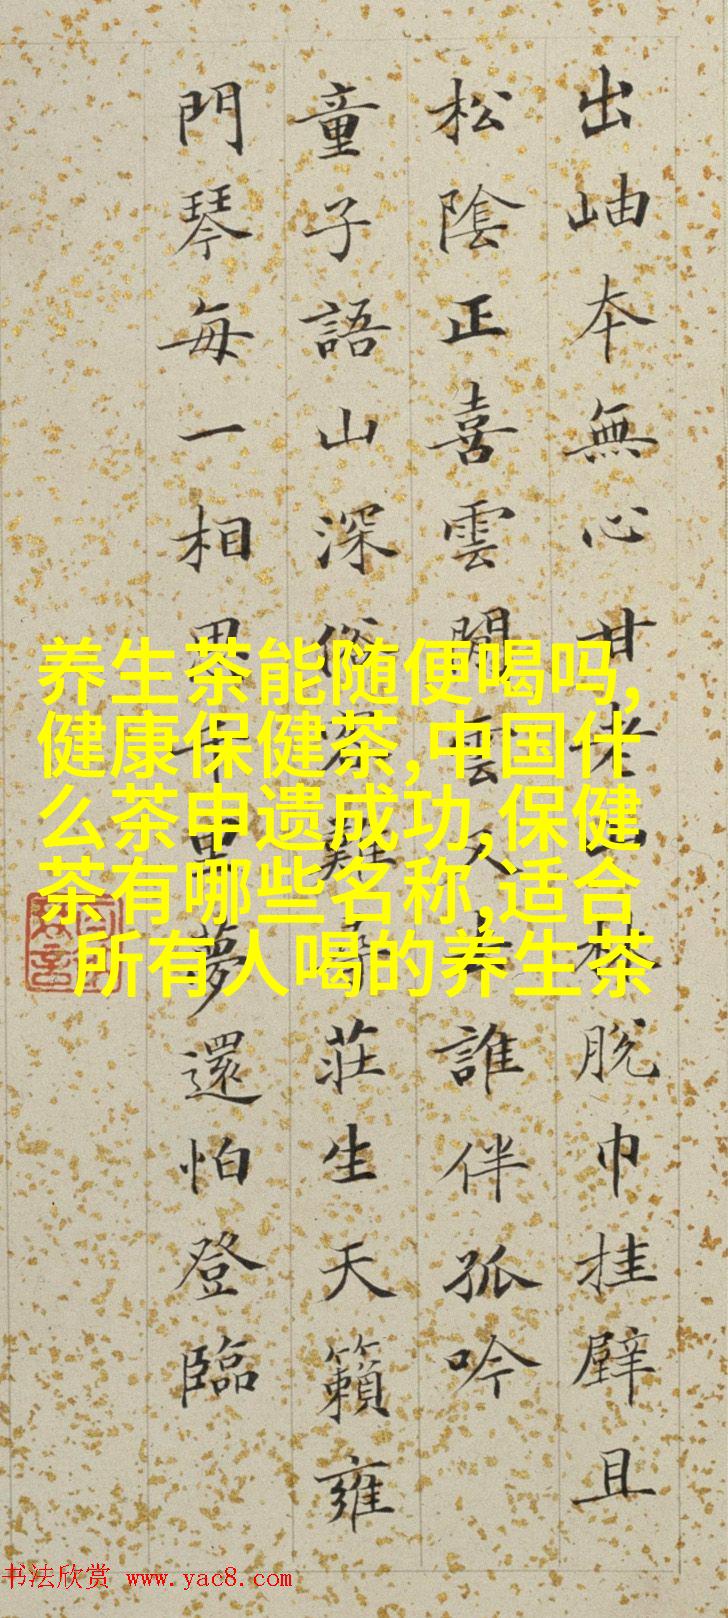 出岫本無心甘老山林脫巾挂壁且
松陰正喜雲閒雲又去誰伴孤吟
童子語山深俗難尋莊生天籟雍
門琴每一相思千里夢還怕登臨
养生茶能随便喝吗,
健康保健茶,中国什
么茶申遗成功,保健
茶有哪些名称,适合
所有人喝的养生茶
书法欣赏 www.yac8.com